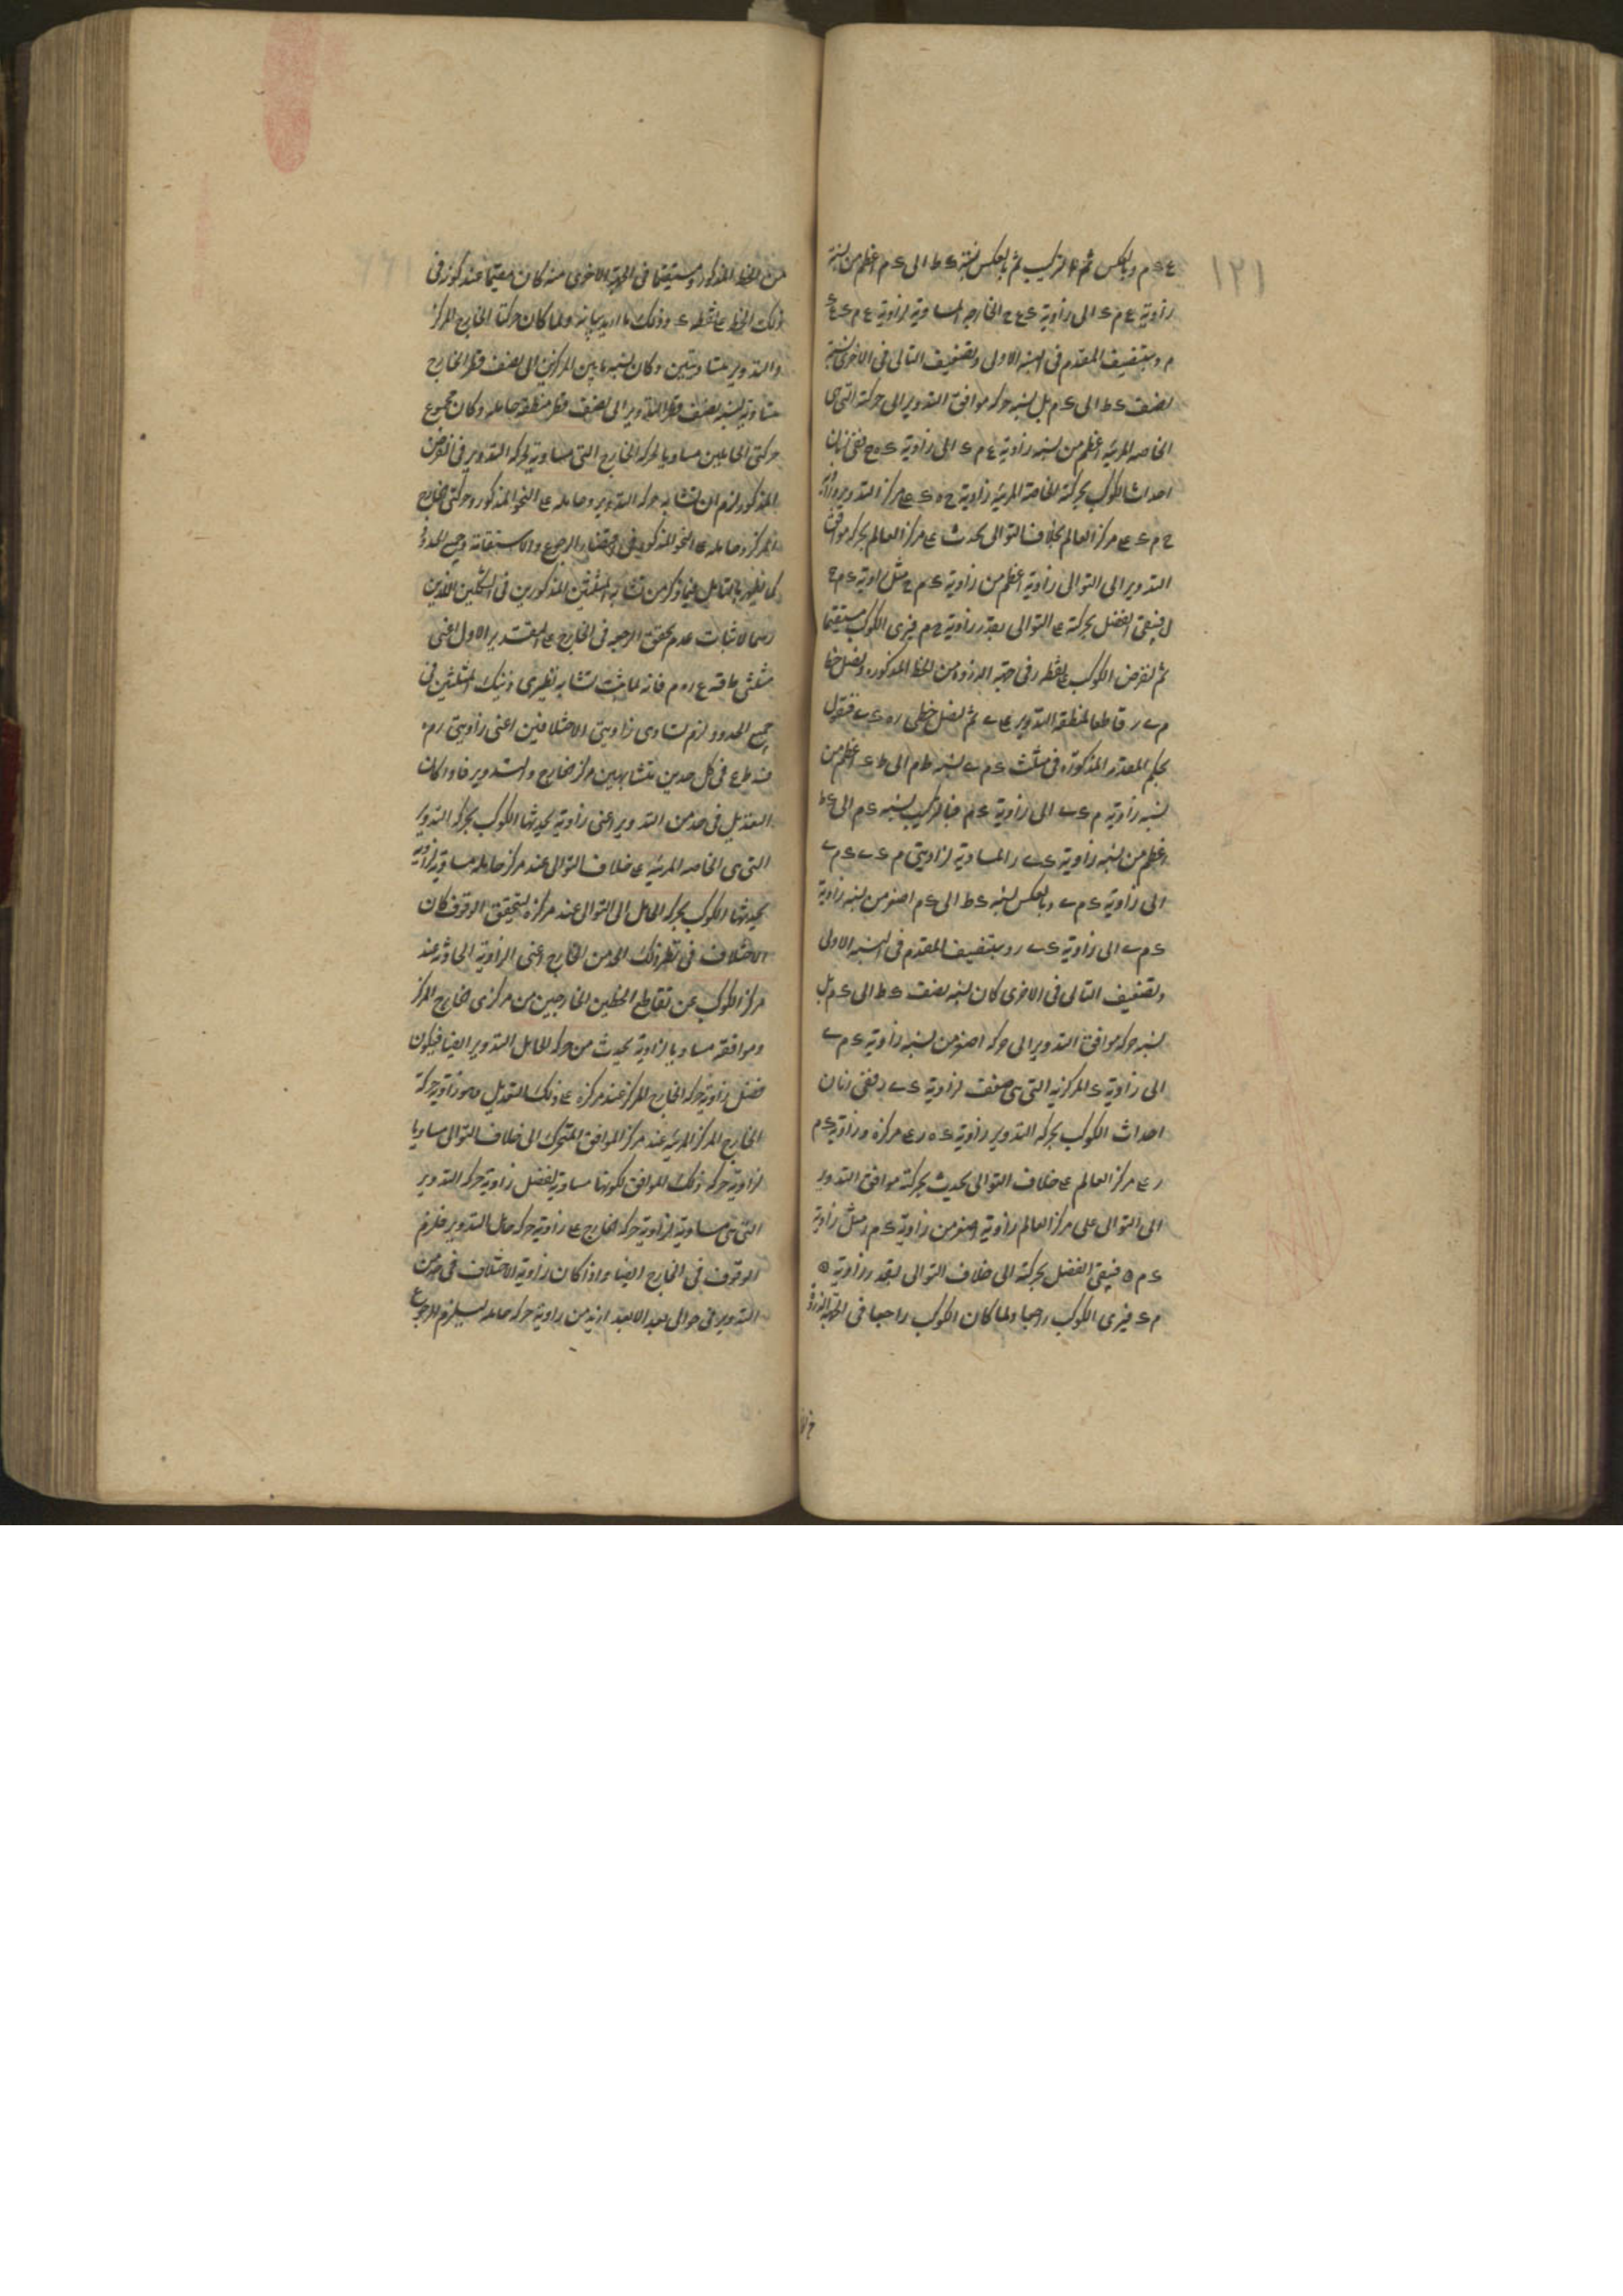 ١٢١
ع ء م وبالعكس ثم بالتركيب ثم بالعكس نسبة ء ط الى ء م اعظم من نسبة
زاوية ع م ء الى زاوية ء ع ح الخارجة المساوية لزاوية ع م ء ع ء
م وبتنصيف المقدم في النسبة الاولى وتضعيف التالي في الاخرى نسبة
نصف ء ط الى ء م بل نسبة حركة موافق التدوير الى حركة التي هي
الخاصة المرئية اعظم من نسبة زاوية ع م ء الى زاوية ء ه ح ففي زمان
احداث الكوكب بحركة الخاصة المرئية زاوية ح ه ء على مركز التدوير وزاوية
ح م ء على مركز العالم بخلاف التوالي يحدث على مركز العالم بحركة موافق
التدوير الى التوالي زاوية اعظم من زاوية ء م ح مثل زاوية ء م ح
ل فيبقى الفضل بحركة على التوالي بقدر زاوية ح م فيرى الكوكب مستقيما
ثم نفرض الكوكب على نقطة ر في جهة الذروة من الخط المذكور ونصل خط
م ب ر قاطعا لمنطقة التدوير على ب ثم نصل خطي ر ه ء ب فنقول
بحكم المقدمة المذكورة في مثلث ء م ب نسبة ط م الى ط ء اعظم من
نسبة زاوية م ء ب الى زاوية ء م فبالتركيب نسبة ء م الى ء ط
اعظم من نسبة زاوية ء ب ر المساوية لزاويتي م ء ب ء م ب
الى زاوية ء م ب وبالعكس نسبة ء ط الى ء م اصغر من نسبة زاوية
ء م ب الى زاوية ء ب ر وبتنصيف المقدم في النسبة الاولى
وتضعيف التالي في الاخرى كان نسبة نصف ء ط الى ء م بل
نسبة حركة موافق التدوير الى حركة اصغر من نسبة زاوية ء م ب
الى زاوية ء المركزية التي هي ضعف لزاوية ء ب ر ففي زمان
احداث الكوكب بحركة التدوير زاوية ء ه ر على مركزه وزاوية ء م
ر على مركز العالم على خلاف التوالي يحدث بحركة موافق التدوير
الى التوالي على مركز العالم زاوية اصغر من زاوية ء م ر مثل زاوية
ء م ه فيبقى الفضل بحركة الى خلاف التوالي بقدر زاوية ه
م ء فيرى الكوكب راجعا ولما كان الكوكب راجعا في الجهة الذروة
من الخط المذكور ومستقيما في الجهة الاخرى منه كان مقيما عند كونه في
ذلك الخط على نقطة ء وذلك ما اردنا بيانه ولما كان حركتا الخارج المركز
والتدوير متساويتين وكان نسبة ما بين المركزين الى نصف قطر الخارج
مساوية لنسبة نصف قطر التدوير الى نصف قطر منطقة حامله وكان مجموع
حركتي الحاملين مساويا لحركة الخارج التي مساوية لحركة التدوير في الفرض
المذكور لزم ان تشابه حركة التدوير وحامله على النحو المذكور وحركتي الخارج
المركز وحامله على النحو المذكور في اقتضاء الرجوع والاستقامة وجميع الحدود
كما يظهر بالتامل فيما ذكر من تشابه المثلثين المذكورين في الشكلين الذين
رسما لاثبات عدم تحقق الرجعة في الخارج على التقدير الاول اعني
مثلثي ع ر ه م فانه لما ثبت تشابه نظيري ذينك المثلثين في
جميع الحدود لزم تساوي زاويتي الاختلافين اعني زاويتي ر م ه
في كل حدين متشابهين من الخارج والتدوير فاذا كان
التعديل في حد من التدوير اعني زاوية يحدثها الكوكب بحركة التدوير
التي هي الخاصة المرئية على خلاف التوالي عند مركز حامله مساوية لزاوية
يحدثها الكوكب بحركة الحامل الى التوالي عند مركزه ليتحقق الوقوف كان
الاختلاف في نظير ذلك الحد من الخارج اعني الزاوية الحادثة عند
مركز الكوكب عن تقاطع الخطين الخارجين من مركزي الخارج المركز
وموافقه مساويا لزاوية يحدث من حركة الحامل التدوير ايضا فيكون
فضل زاوية حركة الخارج المركز عند مركزه على ذلك التعديل وهو زاوية حركة
الخارج المركز المرئية عند مركز الموافق المتحرك الى خلاف التوالي مساويا
لزاوية حركة ذلك الموافق لكونها مساوية لفضل زاوية حركة التدوير
التي هي مساوية لزاوية حركة الخارج على زاوية حركة حامل التدوير فلزم
الوقوف في الخارج ايضا واذا كان زاوية الاختلاف في حد من
التدوير في حوالي بعد الابعد ازيد من زاوية حركة حامله ليلزم الرجوع